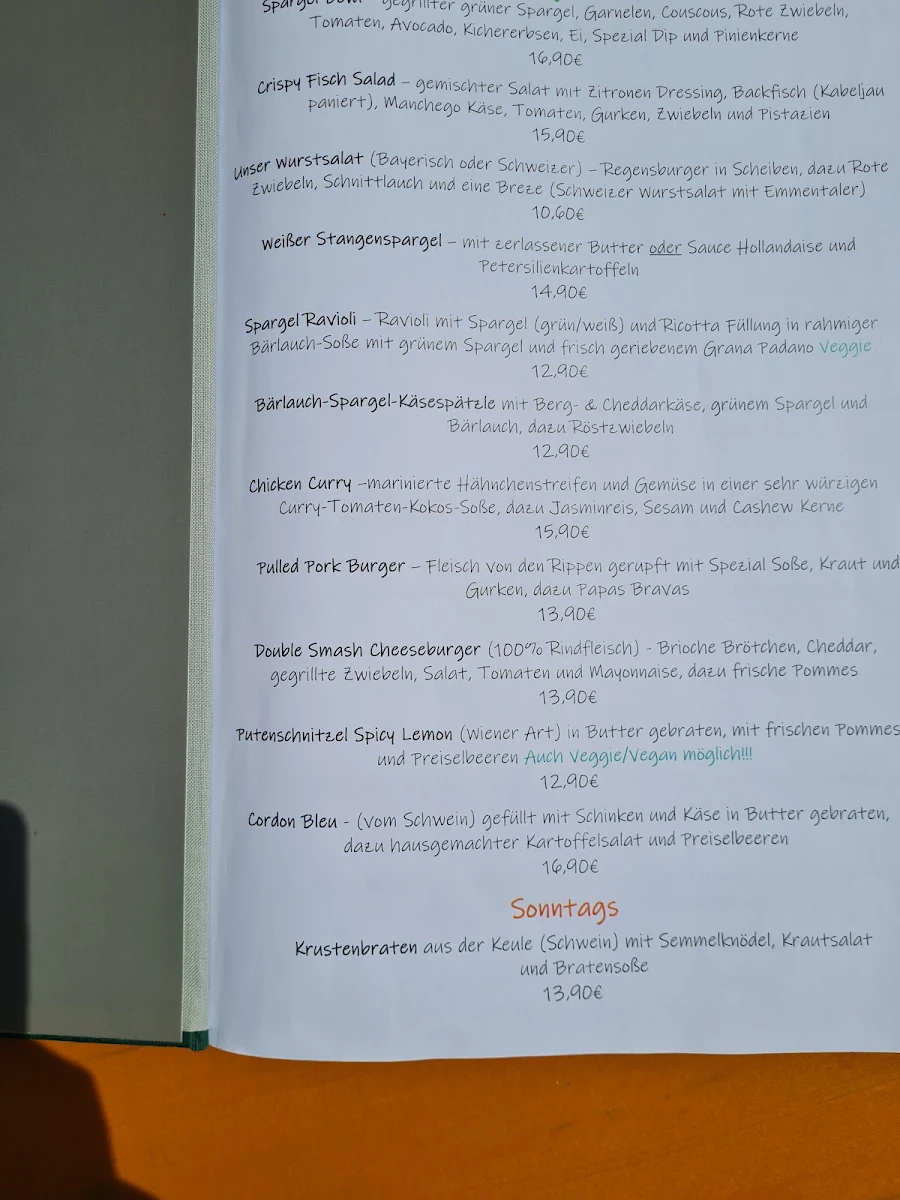 Spargel Bowl – gegrillter grüner Spargel, Garnelen, Couscous, Rote Zwiebeln,
Tomaten, Avocado, Kichererbsen, Ei, Spezial Dip und Pinienkerne
16,90€
Crispy Fisch Salad – gemischter Salat mit Zitronen Dressing, Backfisch (Kabeljau
paniert), Manchego Käse, Tomaten, Gurken, Zwiebeln und Pistazien
15,90€
Unser Wurstsalat (Bayerisch oder Schweizer) – Regensburger in Scheiben, dazu Rote
Zwiebeln, Schnittlauch und eine Breze (Schweizer Wurstsalat mit Emmentaler)
10,60€
Weißer Stangenspargel – mit zerlassener Butter oder Sauce Hollandaise und
Petersilienkartoffeln
14,90€
Spargel Ravioli – Ravioli mit Spargel (grün/weiß) und Ricotta Füllung in rahmiger
Bärlauch-Soße mit grünem Spargel und frisch geriebenem Grana Padano Veggie
12,90€
Bärlauch-Spargel-Käsespätzle mit Berg- & Cheddarkäse, grünem Spargel und
Bärlauch, dazu Röstzwiebeln
12,90€
Chicken Curry –marinierte Hähnchenstreifen und Gemüse in einer sehr würzigen
Curry-Tomaten-Kokos-Soße, dazu Jasminreis, Sesam und Cashew Kerne
15,90€
Pulled Pork Burger – Fleisch von den Rippen gerupft mit Spezial Soße, Kraut und
Gurken, dazu Papas Bravas
13,90€
Double Smash Cheeseburger (100% Rindfleisch) - Brioche Brötchen, Cheddar,
gegrillte Zwiebeln, Salat, Tomaten und Mayonnaise, dazu frische Pommes
13,90€
Putenschnitzel Spicy Lemon (Wiener Art) in Butter gebraten, mit frischen Pommes
und Preiselbeeren Auch Veggie/Vegan möglich!!!
12,90€
Cordon Bleu - (vom Schwein) gefüllt mit Schinken und Käse in Butter gebraten,
dazu hausgemachter Kartoffelsalat und Preiselbeeren
16,90€
Sonntags
Krustenbraten aus der Keule (Schwein) mit Semmelknödel, Krautsalat
und Bratensoße
13,90€